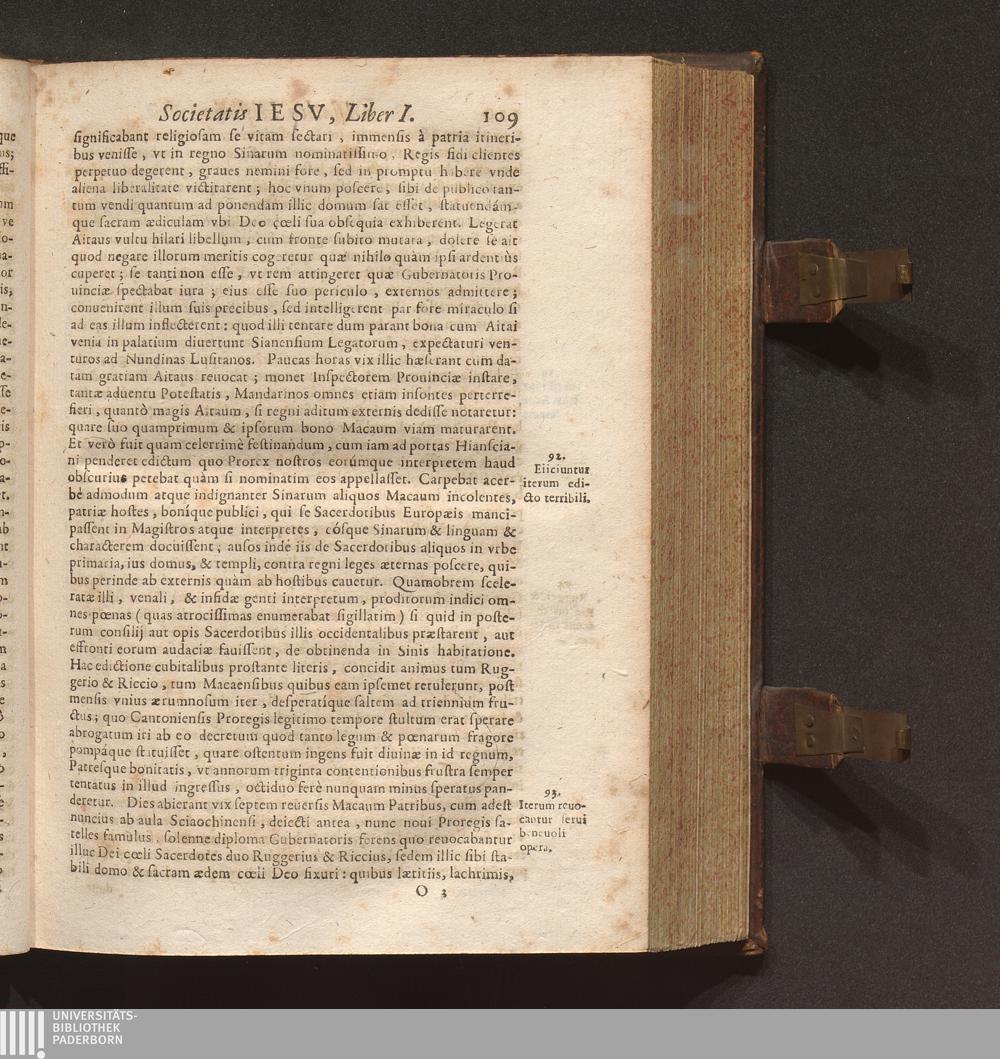 Societatis IESV, Liber I. 109
significabant religiosam se vitam sectari, immensis à patria itineri-
bus venisse, vt in regno Sinarum nominatissimo, Regis fidi clientes
perpetuo degerent, graues nemini fore, sed in promptu habere vnde
aliena liberalitate victitarent; hoc vnum poscere, sibi de publico tan-
tum vendi quantum ad ponendam illic domum sat esset, statuendám-
que sacram ædiculam vbi Deo cœli sua obsequia exhiberent. Legerat
Aitaus vultu hilari libellum, cum fronte subito mutata, dolere se ait
quod negare illorum meritis cogeretur quæ nihilo quàm ipsi ardentiùs
cuperet; se tanti non esse, vt rem attingeret quæ Gubernatoris Pro-
uinciæ spectabat iura; eius esse suo periculo, externos admittere;
conuenirent illum suis precibus, sed intelligerent par fore miraculo si
ad eas illum inflecterent: quod illi tentare dum parant bona cum Aitai
venia in palatium diuertunt Sianensium Legatorum, expectaturi ven-
turos ad Nundinas Lusitanos. Paucas horas vix illic hæserant cum da-
tam gratiam Aitaus reuocat; monet Inspectorem Prouinciæ instare,
tantæ aduentu Potestatis, Mandarinos omnes etiam insontes perterre-
fieri, quantò magis Aitaum, si regni aditum externis dedisse notaretur:
quare suo quamprimum & ipsorum bono Macaum viam maturarent.
Et verò fuit quam celerrimè festinandum, cum iam ad portas Hianscia-
ni penderet edictum quo Prorex nostros eorúmque interpretem haud
obscurius petebat quàm si nominatim eos appellasset. Carpebat acer-
bè admodum atque indignanter Sinarum aliquos Macaum incolentes,
patriæ hostes, bonique publici, qui se Sacerdotibus Europæis manci-
passent in Magistros atque interpretes, eósque Sinarum & linguam &
characterem docuissent; ausos inde iis de Sacerdotibus aliquos in vrbe
primaria, ius domus, & templi, contra regni leges æternas poscere, qui-
bus perinde ab externis quàm ab hostibus cauetur. Quamobrem scele-
ratæ illi, venali, & infidæ genti interpretum, proditorum indici om-
nes pœnas (quas atrocissimas enumerabat sigillatim) si quid in poste-
rum consilij aut opis Sacerdotibus illis occidentalibus præstarent, aut
effronti eorum audaciæ fauissent, de obtinenda in Sinis habitatione.
Hac edictione cubitalibus prostante literis, concidit animus tum Rug-
gerio & Riccio, tum Macaensibus quibus eam ipsemet retulerunt, post
mensis vnius ærumnosum iter, desperatíque saltem ad triennium fru-
ctus; quo Cantoniensis Proregis legitimo tempore stultum erat sperare
abrogatum iri ab eo decretum quod tanto legum & pœnarum fragore
pompáque statuisset, quare ostentum ingens fuit diuinæ in id regnum,
Patresque bonitatis, vt annorum triginta contentionibus frustra semper
tentatus in illud ingressus, octiduo ferè nunquam minus speratus pan-
deretur. Dies abierant vix septem reuersis Macaum Patribus, cum adest
nuncius ab aula Sciaochinensi, deiecti antea, nunc noui Proregis sa-
telles famulus, solenne diploma Gubernatoris ferens quo reuocabantur
illuc Dei cœli Sacerdotes duo Ruggerius & Riccius, sedem illic sibi sta-
bili domo & sacram ædem cœli Deo fixuri: quibus lætitiis, lachrimis,
O 3
92.
Eiiciuntur
iterum edi-
cto terribili.
93.
Iterum reuo-
cantur serui
beneuoli
opera.
UNIVERSITÄTS-
BIBLIOTHEK
PADERBORN